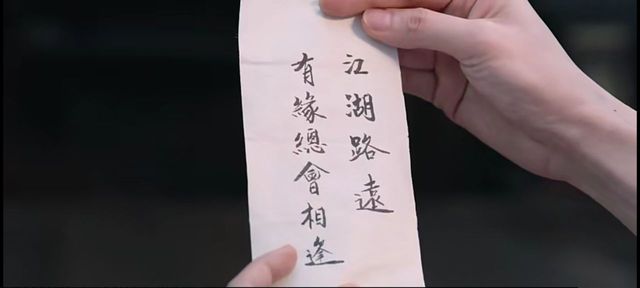 江湖路遠
有緣總會相逢